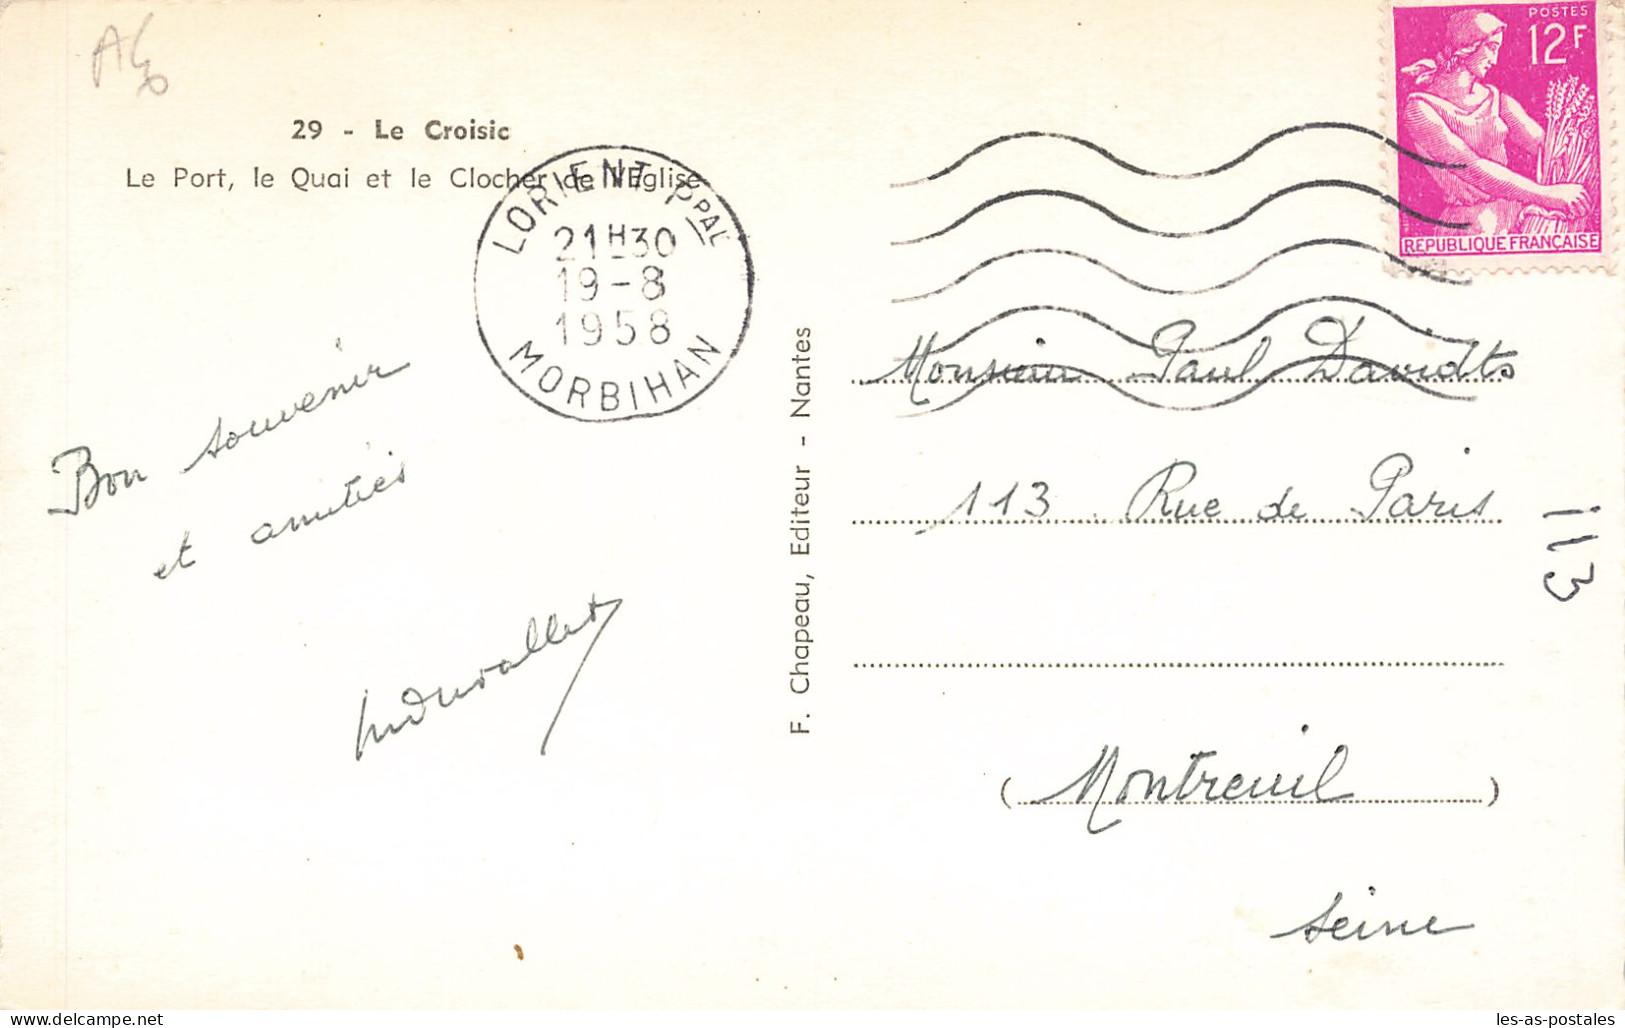 29 - Le Croisic
Le Port, le Quai et le Clocher de l'Eglise
LORIENT Ppal
21H30
19-8
1958
MORBIHAN
POSTES
12F
REPUBLIQUE FRANÇAISE
Bon souvenir
et amitiés
F. Chapeau, Editeur - Nantes
Monsieur Paul Davidts
113 Rue de Paris
113
(Montreuil)
Seine
delcampe.net
les-as-postales